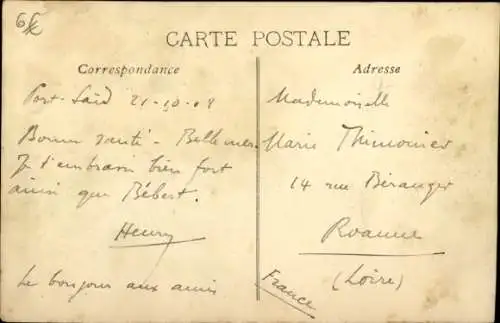 CARTE POSTALE
Correspondance
Port-Saïd 21-10-08
Bonne santé - Belle mer.
Je t'embrasse bien fort
ainsi que Bébert.
Henry
Le bonjour aux amis
Adresse
Mademoiselle
Marie Thimonier
14 rue Béranger
Roanne
(Loire)
France